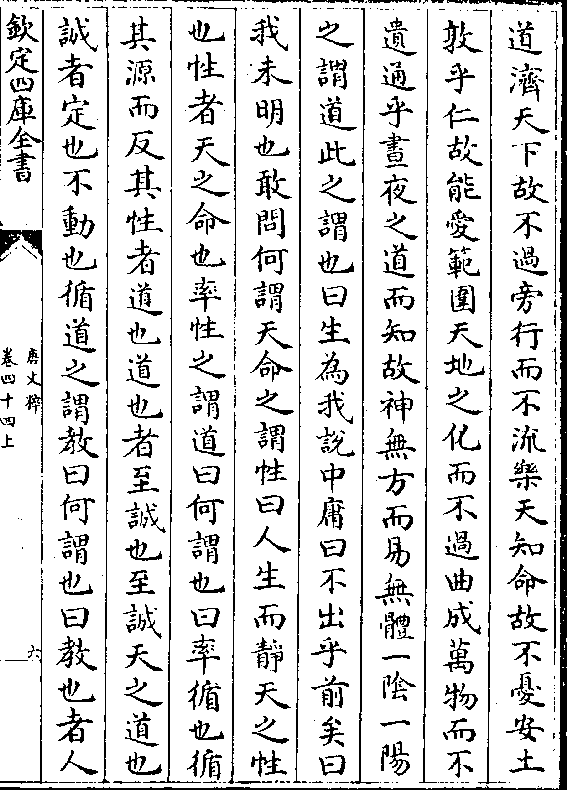 道濟天下故不過旁行而不流樂天知命故不憂安土
敦乎仁故能愛範圍天地之化而不過曲成萬物而不
遺通乎晝夜之道而知故神無方而易無體一陰一陽
之謂道此之謂也曰生為我説中庸曰不出乎前矣曰
我未明也敢問何謂天命之謂性曰人生而靜天之性
也性者天之命也率性之謂道曰何謂也曰率循也循
其源而反其性者道也道也者至誠也至誠天之道也
誠者定也不動也循道之謂教曰何謂也曰教也者人
欽定四庫全書
唐文粹
卷四十四上
六